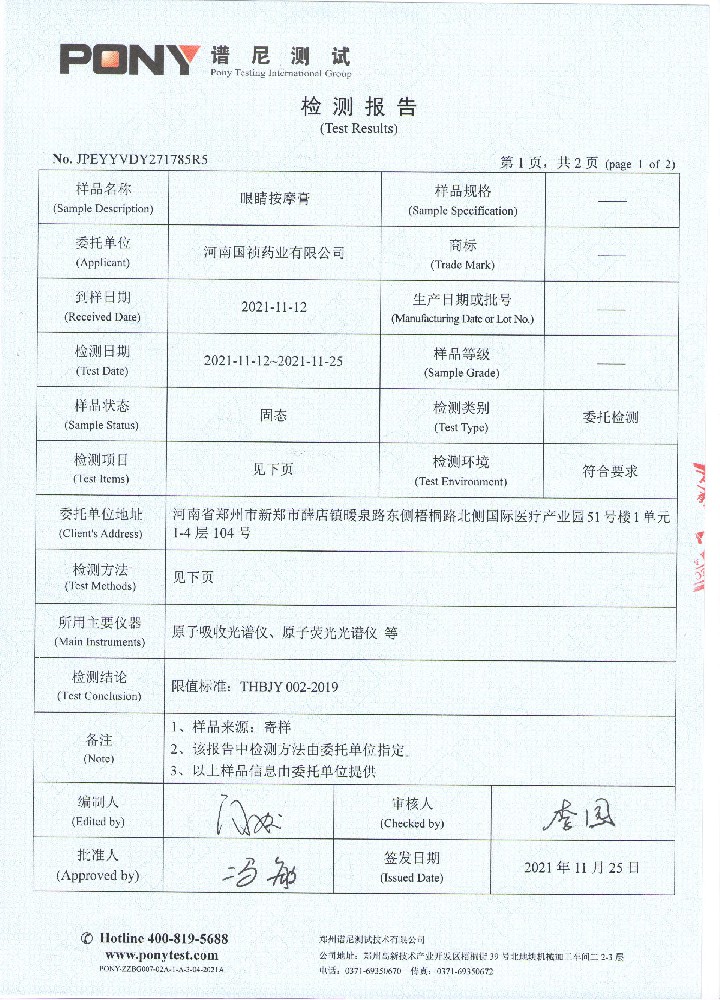 PONY 谱尼测试
Pony Testing International Group
检测报告
(Test Results)
No. JPEYYVDY271785R5
第 1 页，共 2 页 (page 1 of 2)
样品名称 眼睛按摩膏 样品规格 ——
(Sample Description) (Sample Specification)
委托单位 河南国祯药业有限公司 商标 ——
(Applicant) (Trade Mark)
到样日期 2021-11-12 生产日期或批号 ——
(Received Date) (Manufacturing Date or Lot No.)
检测日期 2021-11-12~2021-11-25 样品等级 ——
(Test Date) (Sample Grade)
样品状态 固态 检测类别 委托检测
(Sample Status) (Test Type)
检测项目 见下页 检测环境 符合要求
(Test Items) (Test Environment)
委托单位地址 河南省郑州市新郑市薛店镇暖泉路东侧梧桐路北侧国际医疗产业园 51 号楼 1 单元
(Client's Address) 1-4 层 104 号
检测方法 见下页
(Test Methods)
所用主要仪器 原子吸收光谱仪、原子荧光光谱仪 等
(Main Instruments)
检测结论 限值标准：THBJY 002-2019
(Test Conclusion)
备注 1、样品来源：寄样
(Note) 2、该报告中检测方法由委托单位指定。
3、以上样品信息由委托单位提供
编制人 审核人 李国
(Edited by) (Checked by)
批准人 冯敏 签发日期 2021 年 11 月 25 日
(Approved by) (Issued Date)
Hotline 400-819-5688
www.ponytest.com
PONY-ZZBG007-02A-1-A-3-04-2021A
郑州谱尼测试技术有限公司
公司地址：郑州高新技术产业开发区梧桐街 39 号北地块机械加工车间二 2-3 层
电话：0371-69350670 传真：0371-69350672